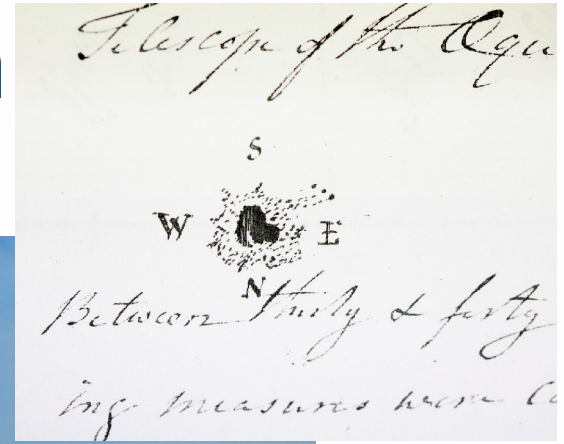 Telescope of the Equ
S
W E
N
Between thirty & forty
ing measures were co